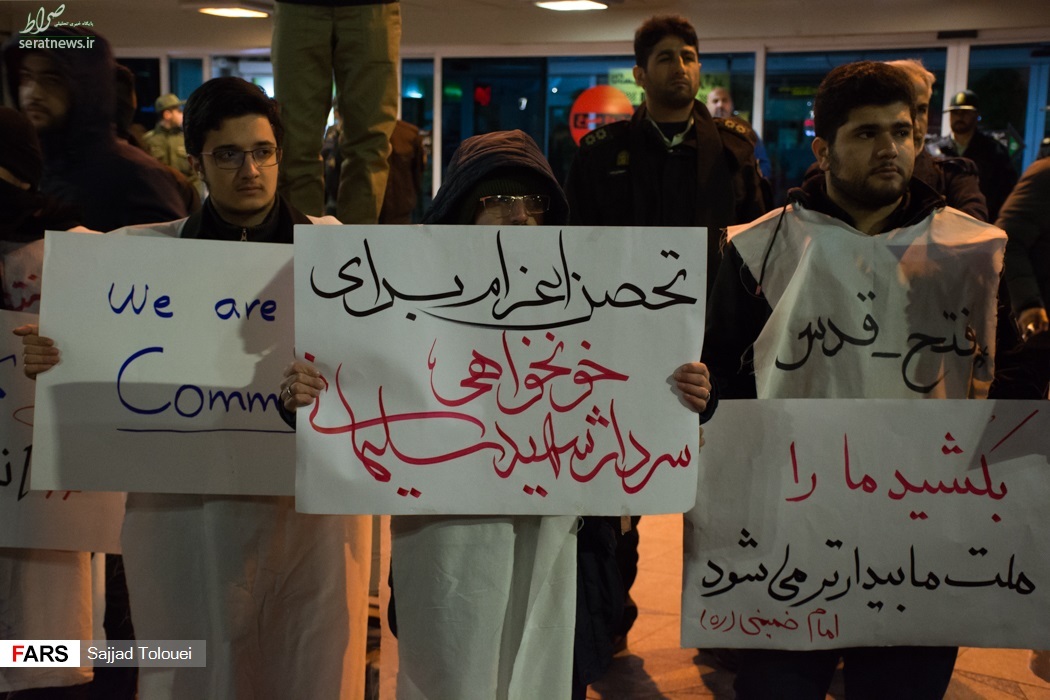 صراط
پایگاه خبری تحلیلی
seratnews.ir
We are
Comm
تحصن اعزام برای
خونخواهی
سردار شهید سلیمانی
فتح_قدس
بکشید ما را
ملت ما بیدارتر می شود
امام خمینی (ره)
FARS
Sajjad Tolouei